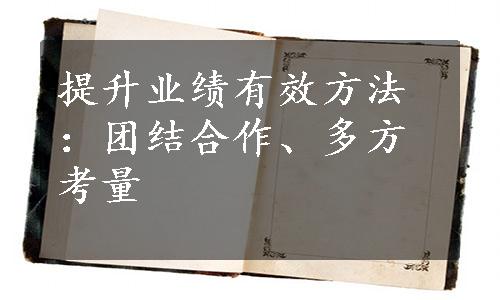 提升业绩有效方法
：团结合作、多方
考量